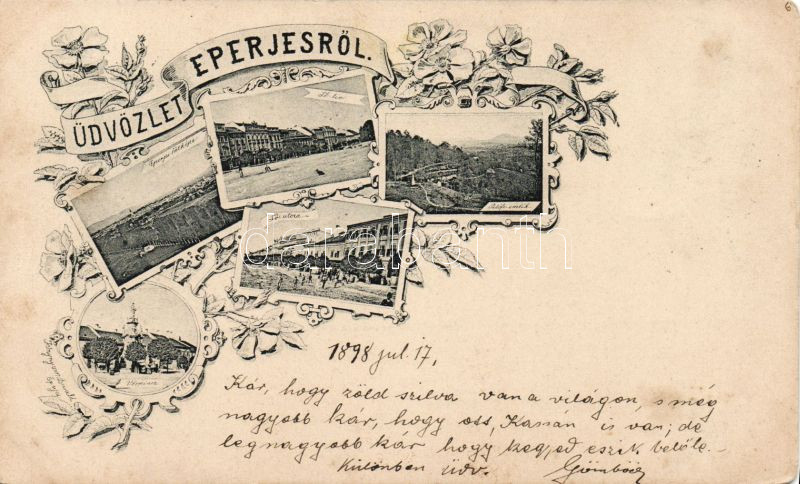 6
ÜDVÖZLET EPERJESRŐL.
Fő tér
Eperjes látképe
Petőfi emlék
Fő utcza
darabanth
1898 jul. 17,
Kár, hogy zöld szilva van a világon, s még
nagyobb kár, hogy ott, Kassán is van; de
legnagyobb kár hogy kegyed eszik belőle.–
Különben üdv.